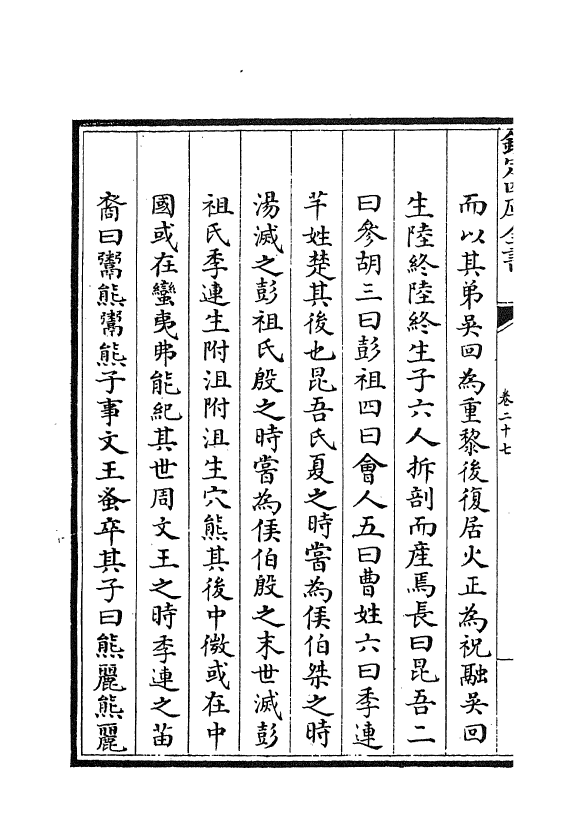 欽定四庫全書
卷二十七
而以其弟吳回為重黎後復居火正為祝融吳回
生陸終陸終生子六人拆剖而產焉長曰昆吾二
曰參胡三曰彭祖四曰會人五曰曹姓六曰季連
芊姓楚其後也昆吾氏夏之時嘗為侯伯桀之時
湯滅之彭祖氏殷之時嘗為侯伯殷之末世滅彭
祖氏季連生附沮附沮生穴熊其後中微或在中
國或在蠻夷弗能紀其世周文王之時季連之苖
裔曰鬻熊鬻熊子事文王蚤卒其子曰熊麗熊麗